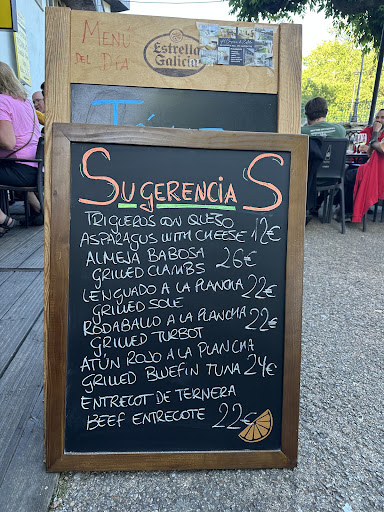 MENÚ
DEL DÍA
Estrella
Galicia
SUGERENCIAS
TRIGUEROS CON QUESO
ASPARAGUS WITH CHEESE 12€
ALMEJA BABOSA
GRILLED CLAMBS 26€
LENGUADO A LA PLANCHA
GRILLED SOLE 22€
RODABALLO A LA PLANCHA
GRILLED TURBOT 22€
ATÚN ROJO A LA PLANCHA
GRILLED BLUEFIN TUNA 24€
ENTRECOT DE TERNERA
BEEF ENTRECOTE 22€